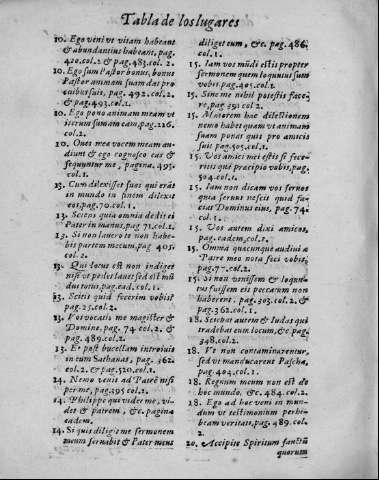 Tabla de los lugares
10. Ego veni vt vitam habeant
& abundantius habeant, pag.
420.col.2 & pag.483.col. 2.
10. Ego sum Pastor bonus, bonus
Pastor animam suam dat pro
ouibus suis, pag. 492.col.2.
& pag.493.col.2.
10. Ego pono animam meam vt
iterum sumam eam, pag.226.
col.2.
10. Oues meæ vocem meam au-
diunt & ego cognosco eas &
sequuntur me, pagina. 495.
col.1.
13. Cum dilexisset suos qui erāt
in mundo in finem dilexit
eos, pag.70.col.1.
13. Sciens quia omnia dedit ei
Pater in manus, pag 71.col.1.
13. Si non lauero te non habe-
bis partem mecum, pag 405.
col.2.
13. Qui lotus est non indiget
nisi vt pedes lauet sed est mū
dus totus, pag.ead.col.1.
13. Scitis quid fecerim vobis?
pag.25.col.2.
13. Vos vocatis me magister &
Domine, pag. 74 col.2. &
pag. 489.col.2.
13. Et post bucellam introiuit
in eum Sathanas, pag. 362.
col.2. & pag.520.col.1.
14. Nemo venit ad Patrē nisi
per me, pag.295.col.1.
14. Philippe qui videt me, vi-
det & patrem, &c. pagina
eadem.
14. Si quis diligit me sermonem
meum seruabit & Pater meus
diliget eum, &c. pag. 486.
col.1.
15. Iam vos mūdi estis propter
sermonem quem loquutus sum
vobis, pag.405.col.1.
15. Sine me nihil potestis face-
re, pag 391 col 2.
15. Maiorem hac dilectionem
nemo habet quam vt animam
suam ponat quis pro amicis
suis pag.505.col.1.
15. Vos amici mei estis si fece-
ritis quæ præcipio vobis, pag.
504.col.1.
15. Iam non dicam vos seruos
quia seruus nescit quid fa-
ciat Dominus eius, pag. 74.
col.1.
15. Vos autem dixi amicos,
pag.eadem, col.1.
15. Omnia quæcunque audiui a
Patre meo nota feci vobis,
pag.7.col.2.
15. Si non venissem & loquu-
tus fuissem eis peccatum non
haberent, pag.303.col.2. &
pag.362.col.1.
18. Sciebat autem & Iudas qui
tradebat eum locum, &c pag.
348.col.2.
18. Vt non contaminarentur,
sed vt manducarent Pascha,
pag.404.col.1.
18. Regnum meum non est de
hoc mundo, &c. 484.col.2.
18. Ego ad hoc veni in mun-
dum vt testimonium perhi-
beam veritati, pag. 489.col.
2.
20. Accipite Spiritum sanctū
quorum